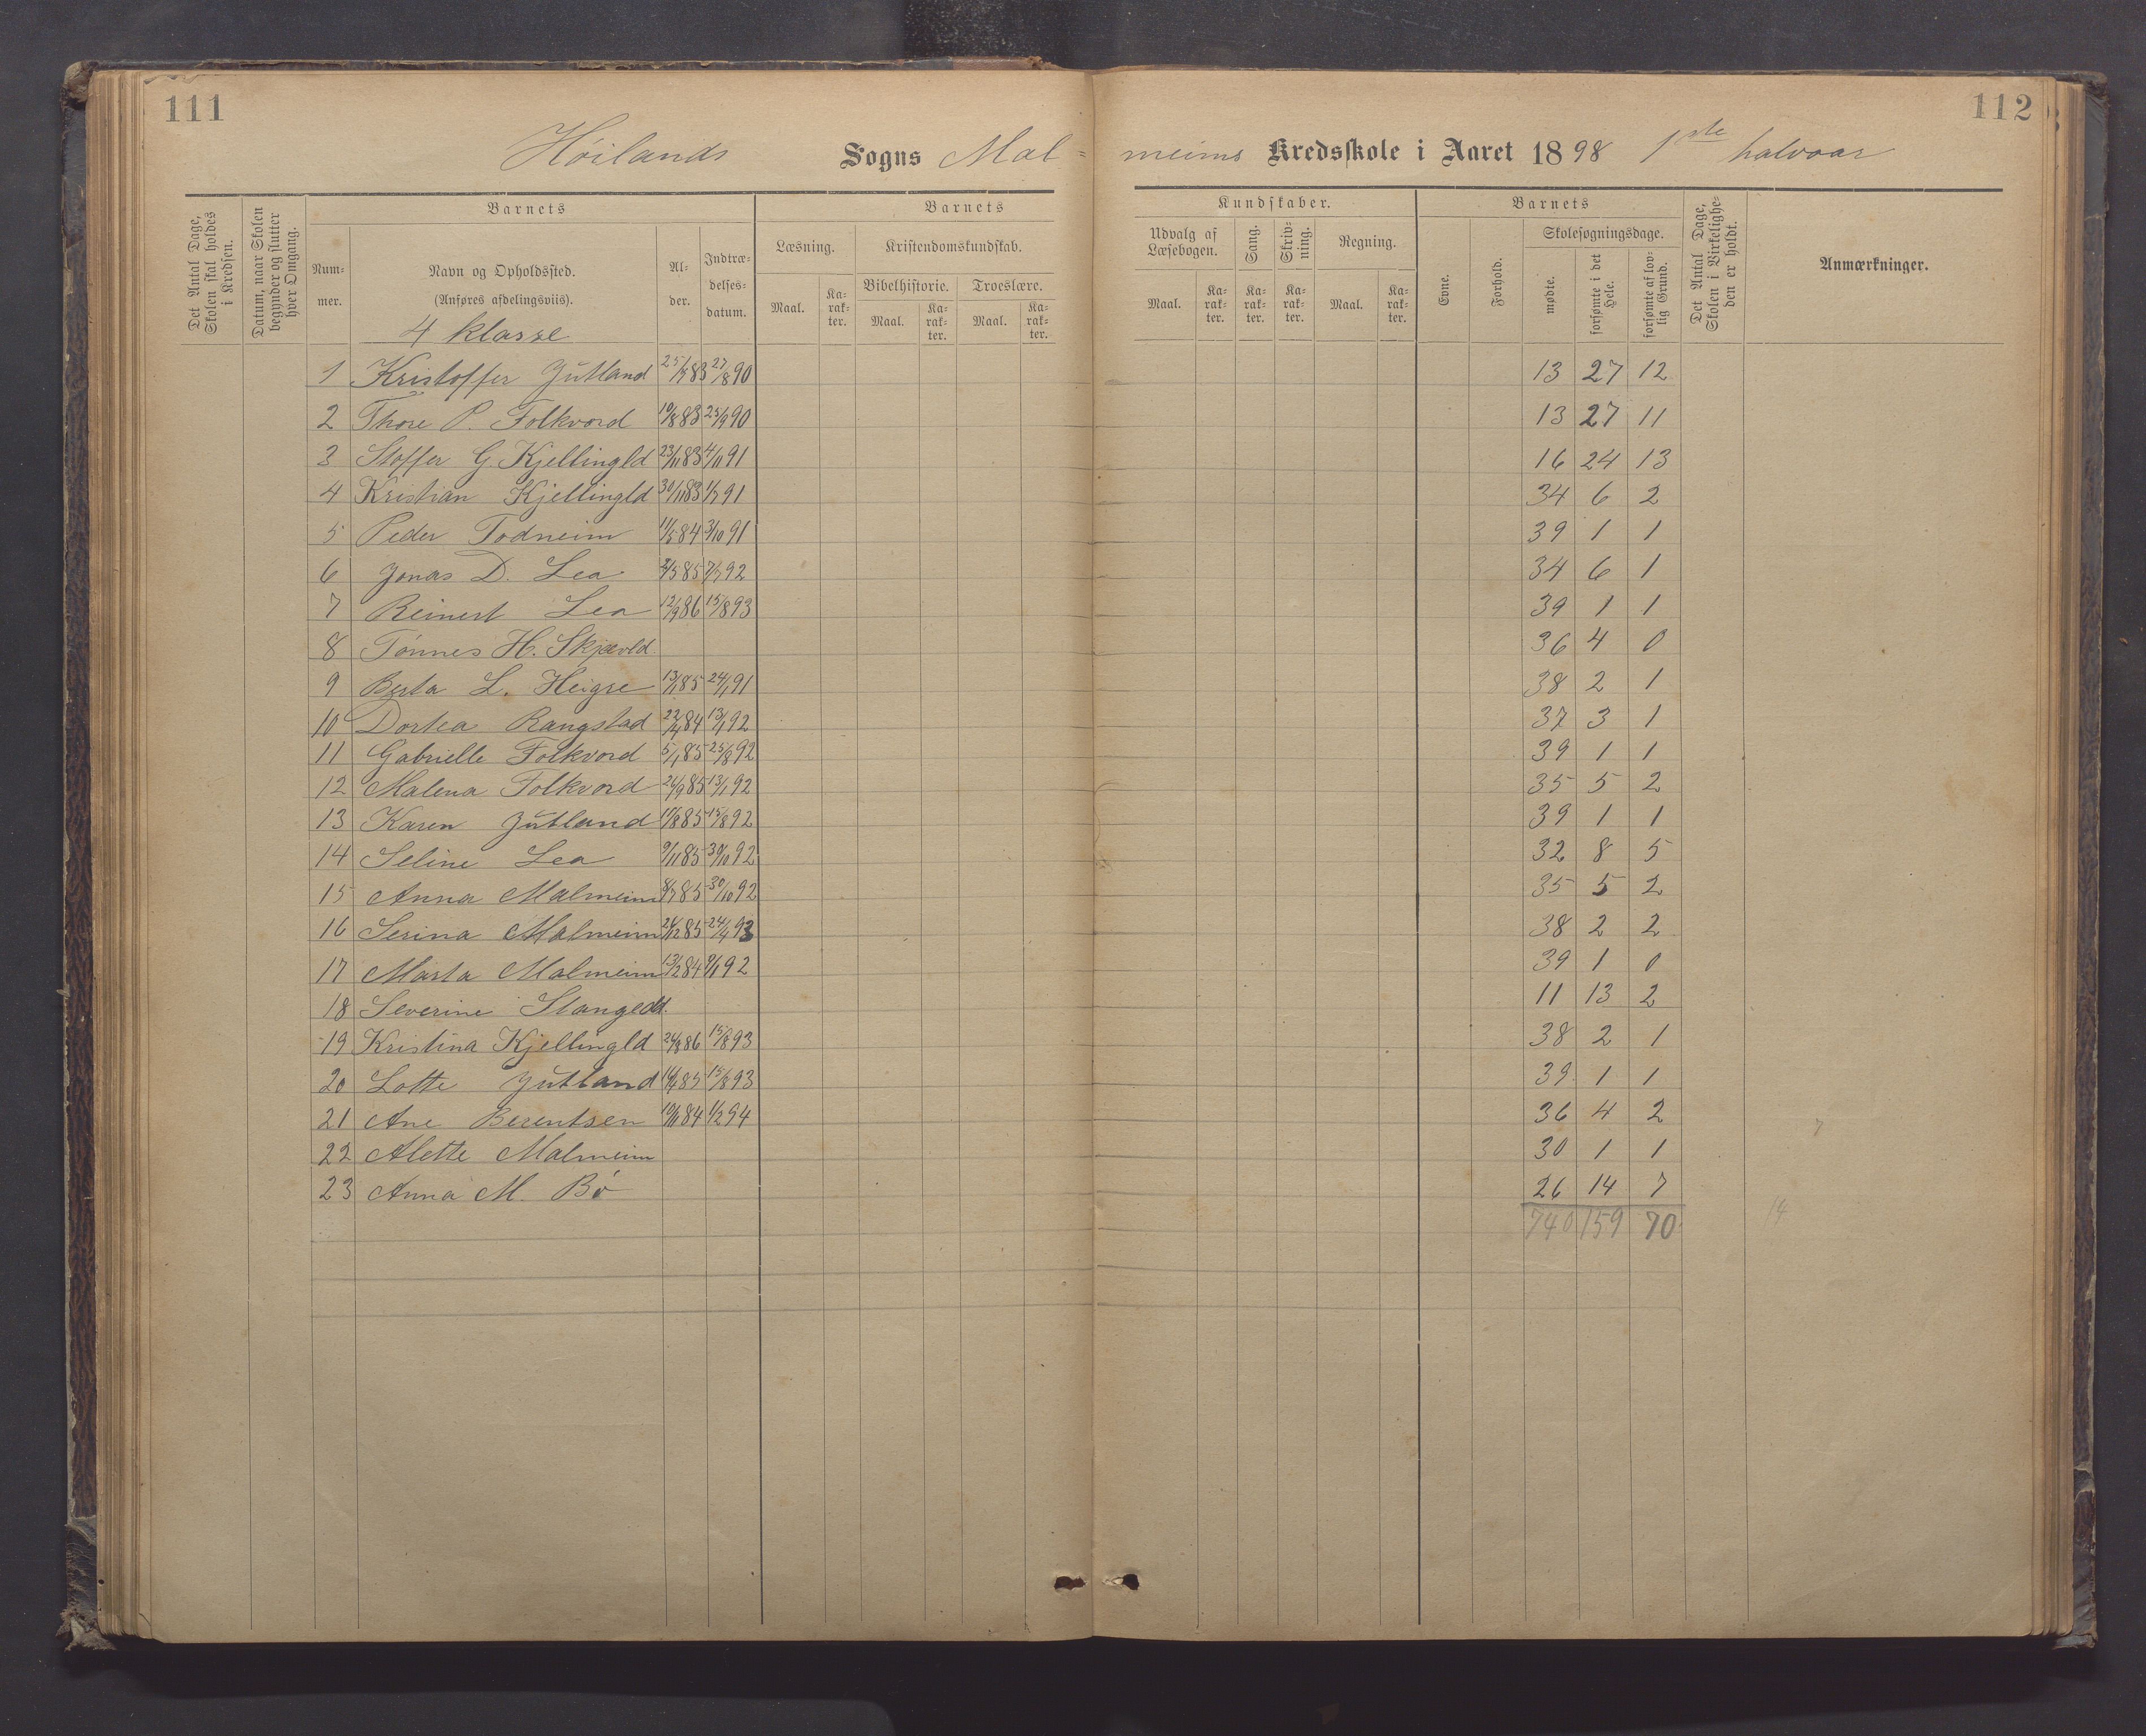 111
112
Høilands Sogns Mal-
meims Kredsskole i Aaret 1898 1ste halvaar
Det Antal Dage, Skolen skal holdes i Kredsen.
Datum, naar Skolen begynder og slutter hver Omgang.
Barnets
Nummer.
Navn og Opholdssted.
(Anføres afdelingsviis).
Alder.
Indtrædelsesdatum.
Barnets
Læsning.
Maal.
Karakter.
Kristendomskundskab.
Bibelhistorie.
Maal.
Karakter.
Troeslære.
Maal.
Karakter.
Kundskaber.
Udvalg af Læsebogen.
Maal.
Karakter.
Sang.
Karakter.
Skrivning.
Karakter.
Regning.
Maal.
Karakter.
Barnets
Evne.
Forhold.
Skolesøgningsdage.
mødte.
forsømte i det Hele.
forsømte af lovlig Grund.
Det Antal Dage, Skolen i Virkeligheden er holdt.
Anmærkninger.
4 klasse
1 Kristoffer Jutland 25/7 83 27/8 90 13 27 12
2 Thore P. Folkvord 10/8 83 25/9 90 13 27 11
3 Stoffer G. Kjellingld 23/11 83 4/11 91 16 24 13
4 Kristian Kjellingld 30/11 83 1/7 91 34 6 2
5 Peder Todneim 11/5 84 3/10 91 39 1 1
6 Jonas D. Lea 85 7/7 92 34 6 1
7 Reinert Lea 12/9 86 15/8 93 39 1 1
8 Tønnes H. Skjæveld 36 4 0
9 Berta L. Heigre 13/1 85 24/1 91 38 2 1
10 Dortea Rangstad 22/4 84 13/1 92 37 3 1
11 Gabrielle Folkvord 5/1 85 25/8 92 39 1 1
12 Malena Folkvord 26/9 85 13/1 92 35 5 2
13 Karen Jutland 11/8 85 15/8 92 39 1 1
14 Seline Lea 9/11 85 30/10 92 32 8 5
15 Anna Malmeim 8/7 85 30/10 92 35 5 2
16 Serina Malmeim 26/12 85 24/4 93 38 2 2
17 Marta Malmeim 13/2 84 9/1 92 39 1 0
18 Severine Stangeld. 11 13 2
19 Kristina Kjellingld 24/8 86 15/8 93 38 2 1
20 Lotte Jutland 16/4 85 15/8 93 39 1 1
21 Ane Berentsen 10/11 84 1/2 94 36 4 2
22 Alette Malmeim 30 1 1
23 Anna M. Bø 26 14 7
740 159 70